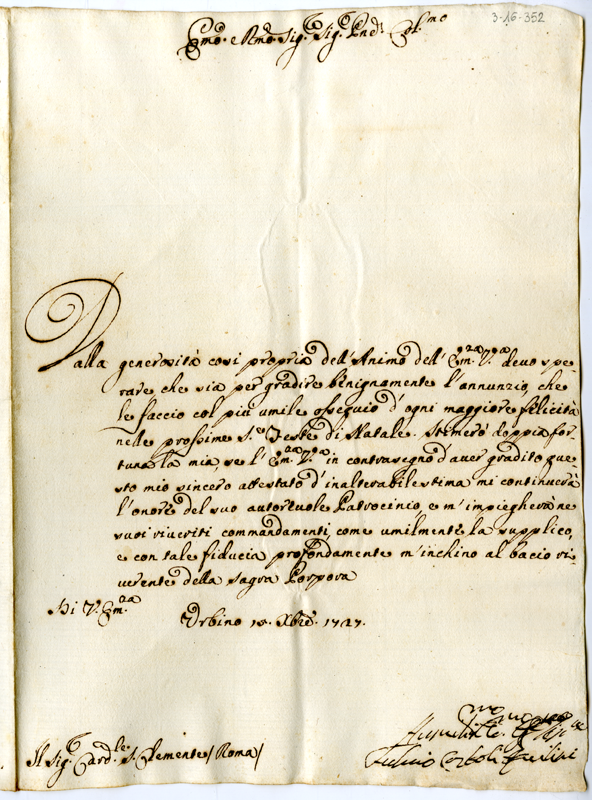 3-16-352
Emo. e Rmo. Sig.r Sig.r Pnd. Col.mo
Dalla generosità così propria dell'Animo dell'Em.za V.ra devo spe-
rare che sia per gradire benignamente l'annunzio, che
le faccio col più umile ossequio d'ogni maggiore felicità
nelle prossime S.e Feste di Natale. Stimerò doppia for-
tuna la mia, se l'Em.za V.ra in contrasegno d'aver gradito que
sto mio sincero attestato d'inalterabile stima mi continuerà
l'onore del suo autorevole Patrocinio, e m'impiegherà ne
suoi riveriti commandamenti, come umilmente la supplico,
e con tale fiducia profondamente m'inchino al bacio ri-
verente della sagra Porpora
Di V. Em.za
Urbino Xbre. 1727.
Il Sig.r Card.le S. Clemente / Roma /